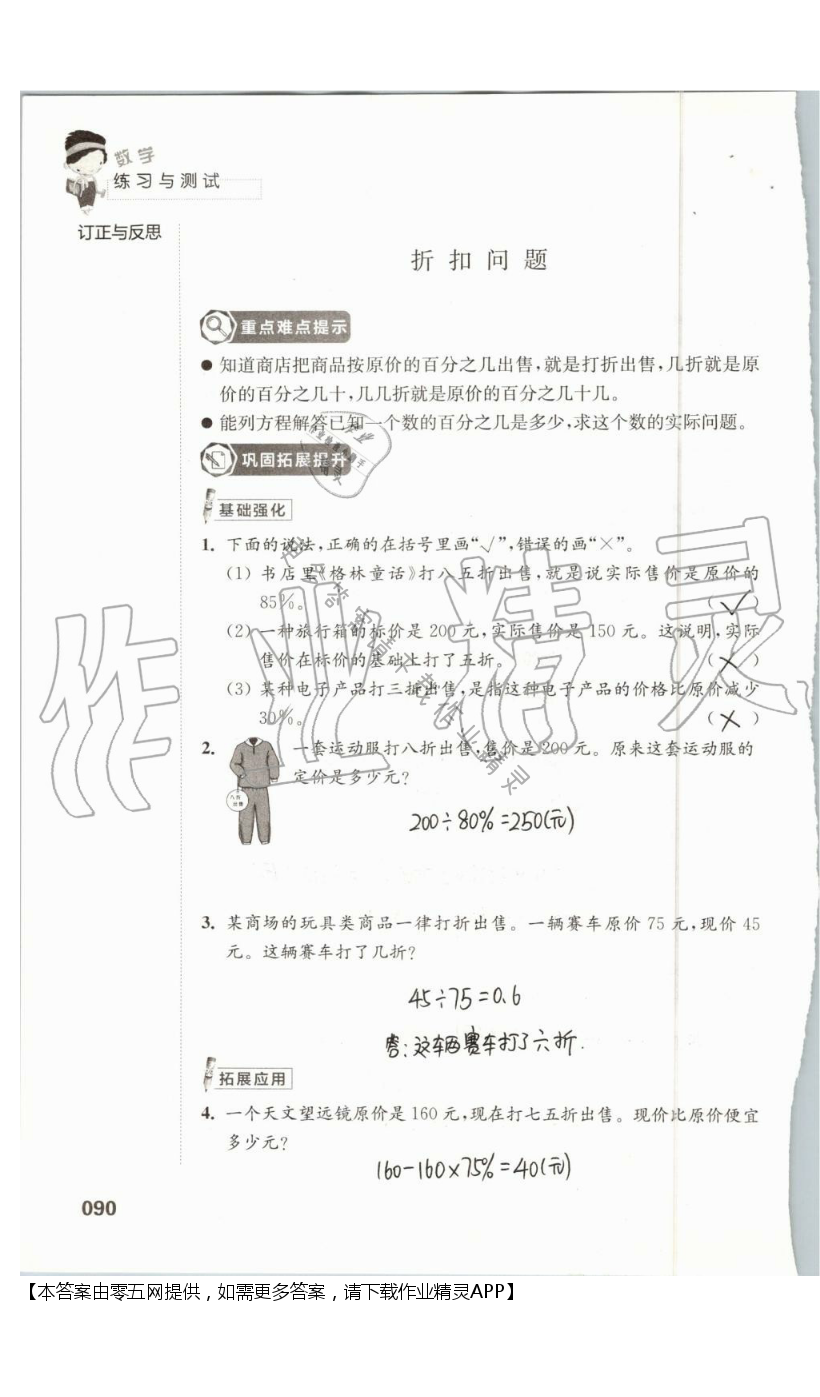 数学
练习与测试
订正与反思
折扣问题
重点难点提示
● 知道商店把商品按原价的百分之几出售,就是打折出售,几折就是原
价的百分之几十,几几折就是原价的百分之几十几。
● 能列方程解答已知一个数的百分之几是多少,求这个数的实际问题。
巩固拓展提升
基础强化
1. 下面的说法,正确的在括号里画“√”,错误的画“×”。
(1) 书店里《格林童话》打八五折出售,就是说实际售价是原价的
85%。 (√)
(2) 一种旅行箱的标价是 200 元,实际售价是 150 元。这说明,实际
售价在标价的基础上打了五折。 (×)
(3) 某种电子产品打三折出售,是指这种电子产品的价格比原价减少
30%。 (×)
2. 一套运动服打八折出售,售价是 200 元。原来这套运动服的
定价是多少元?
八折
出售
200÷80%=250(元)
3. 某商场的玩具类商品一律打折出售。一辆赛车原价 75 元,现价 45
元。这辆赛车打了几折?
45÷75=0.6
答:这辆赛车打了六折.
拓展应用
4. 一个天文望远镜原价是 160 元,现在打七五折出售。现价比原价便宜
多少元?
160-160×75%=40(元)
090
作业精灵
【本答案由零五网提供,如需更多答案,请下载作业精灵APP】